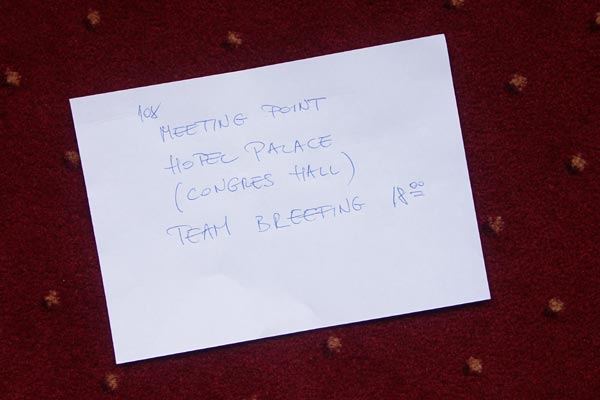 108
MEETING POINT
HOTEL PALACE
(CONGRES HALL)
TEAM BREEFING 18⁰⁰